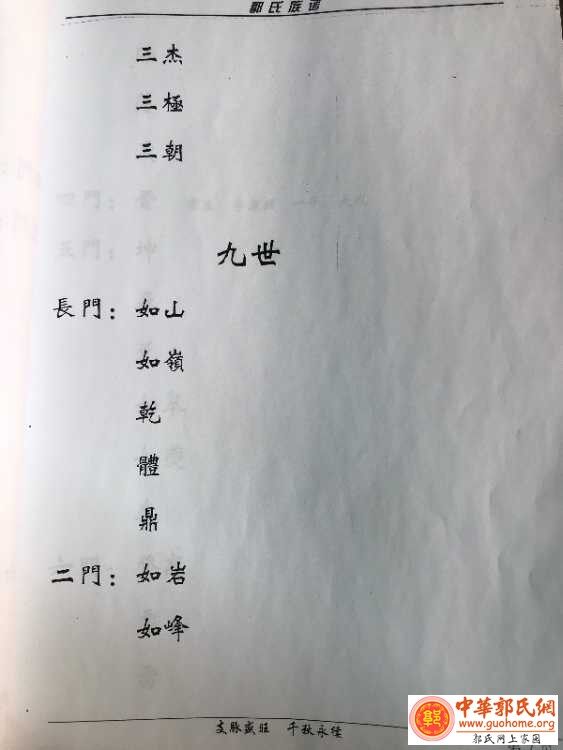 郭氏族谱
三杰
三極
三朝
九世
長門：如山
如嶺
乾
體
鼎
二門：如岩
如峰
支脉盛旺 千秋永佳
中華郭氏網
www.guohome.org
郭氏网上家园